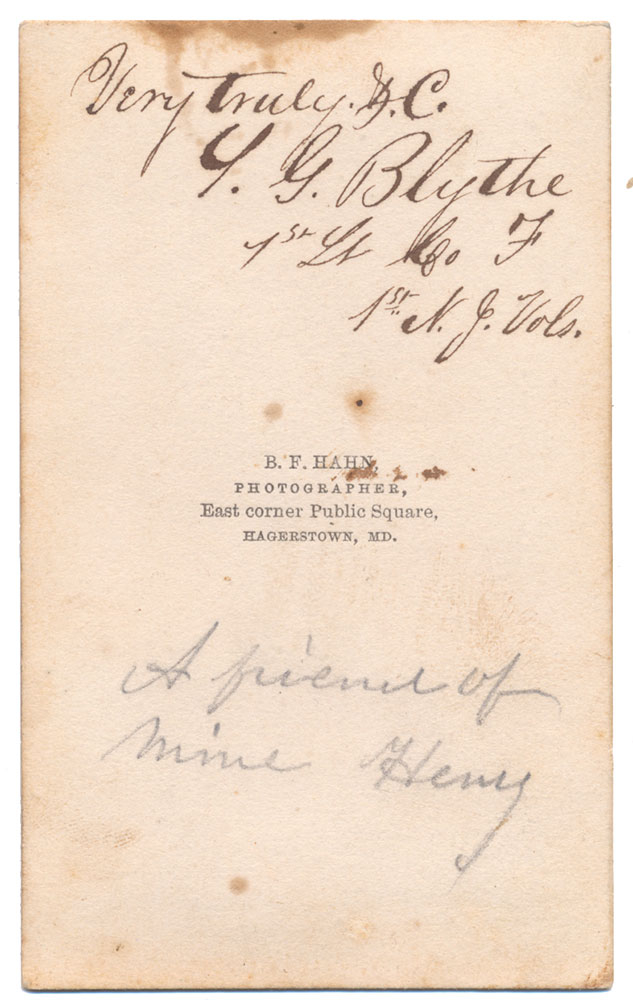 Very truly &.C.
S. G. Blythe
1st Lt Co F
1st N. J. Vols.
B. F. HAHN,
PHOTOGRAPHER,
East corner Public Square,
HAGERSTOWN, MD.
A friend of
mine Henry